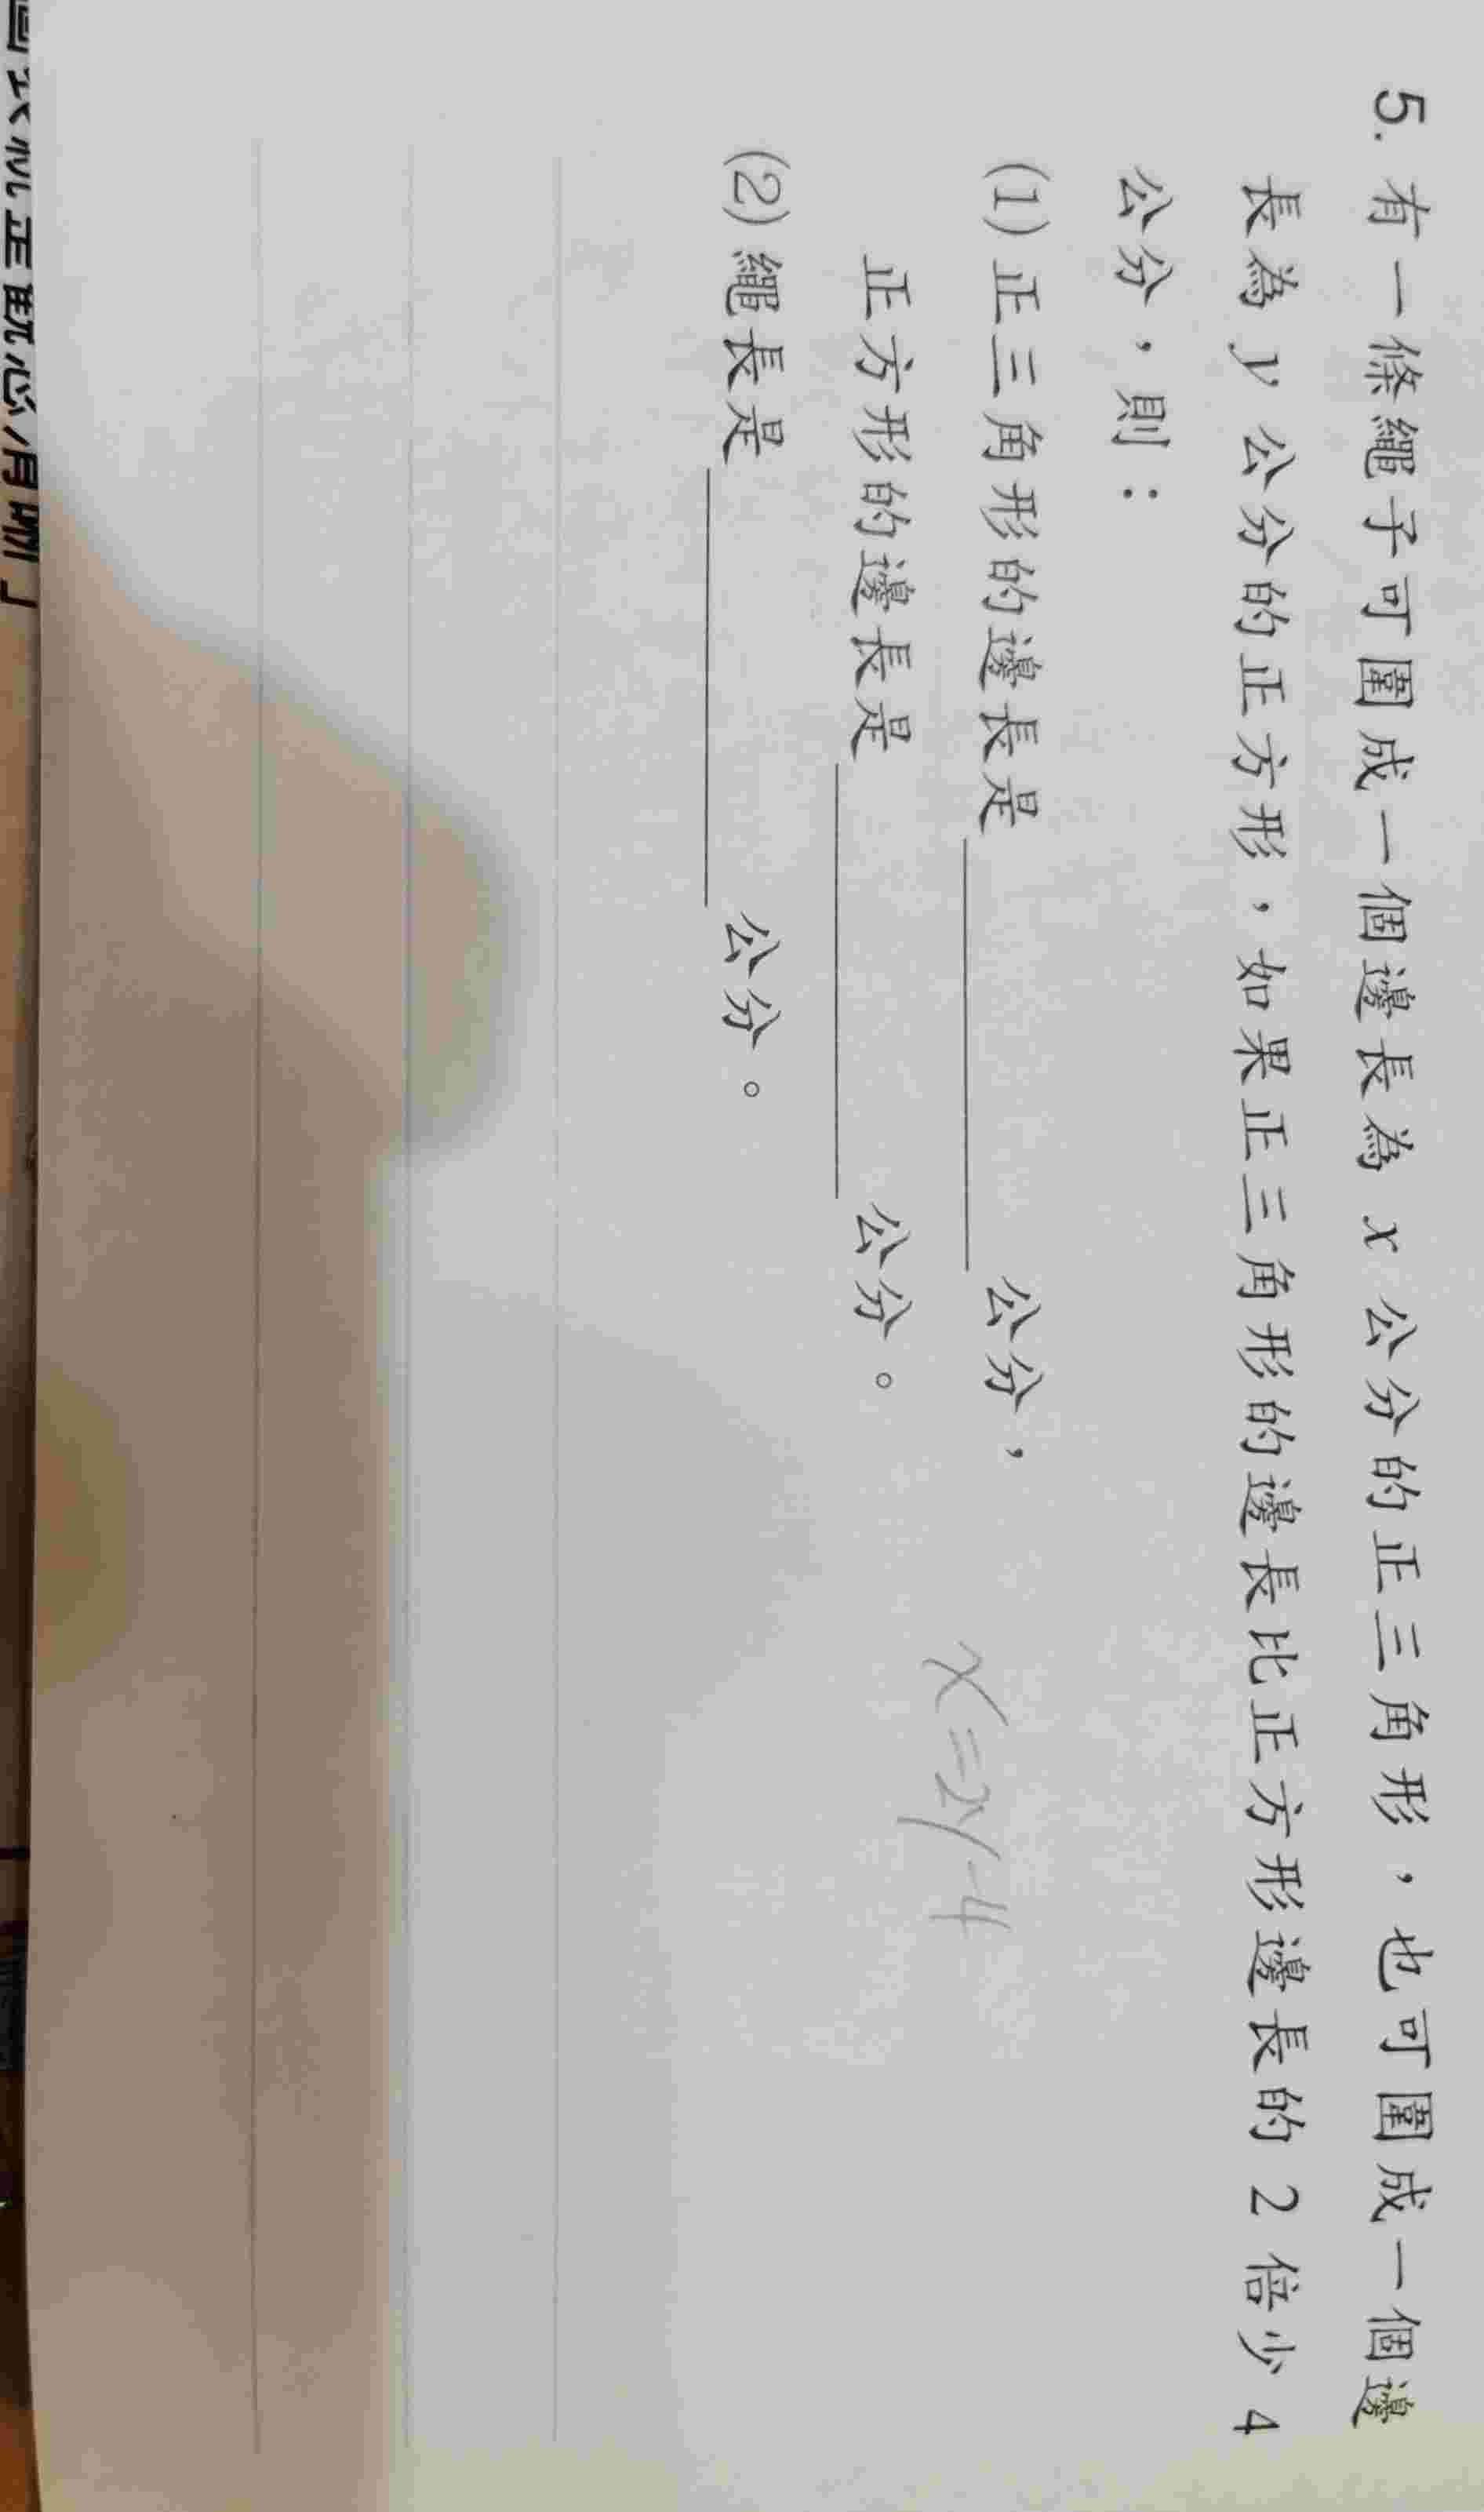 5. 有一條繩子可圍成一個邊長為 x 公分的正三角形，也可圍成一個邊
長為 y 公分的正方形，如果正三角形的邊長比正方形邊長的 2 倍少 4
公分，則：
(1) 正三角形的邊長是________公分，
正方形的邊長是________公分。
x=2y-4
(2) 繩長是________公分。